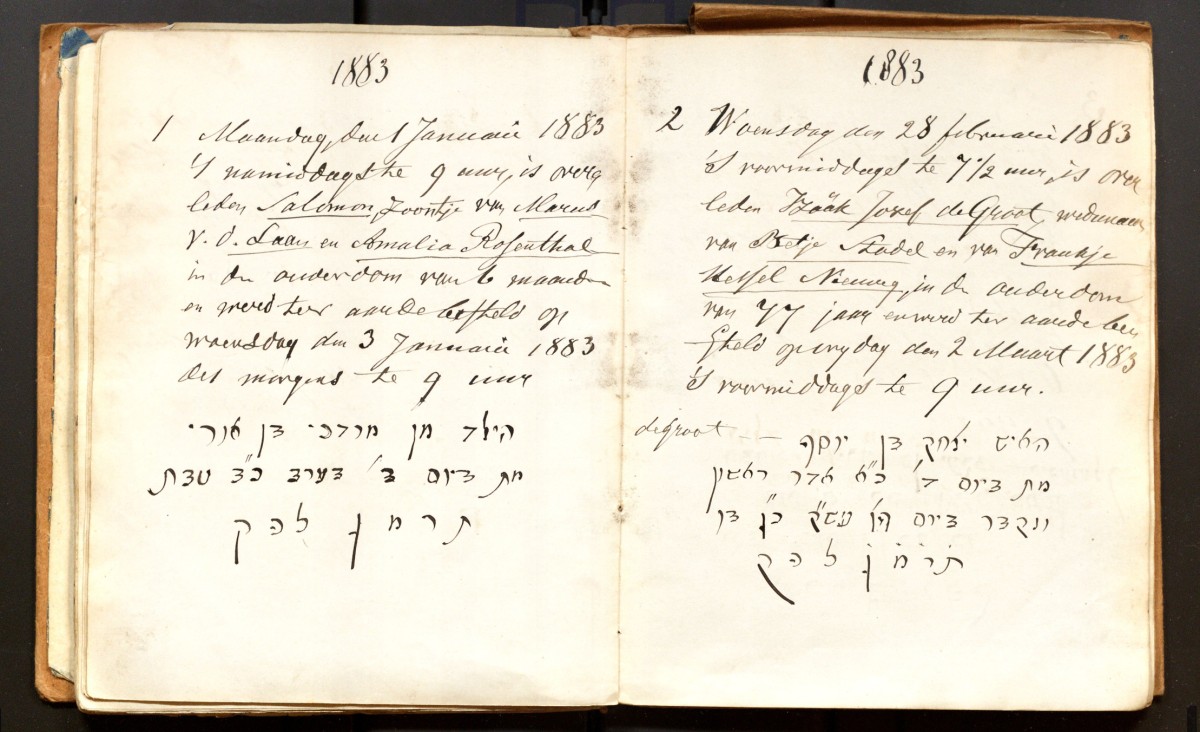 1883
1 Maandag, den 1 Januari 1883
's namiddags te 9 uur, is over
leden Salomon, Zoontje van Marcus
v. d. Laan en Amalia Rosenthal
in den ouderdom van 6 maanden
en werd ter aarde besteld op
woensdag den 3 Januari 1883
des morgens te 9 uur
הילד מן מרדכי בן אורי
מת ביום ב' בערב כ"ב טבת
ת ר מ ג לפק
1883
2 Woensdag den 28 februari 1883
's voormiddags te 7 1/2 uur, is over
leden Izäak Jozef de Groot, weduwnaar
van Betje Stodel en van Frankje
Hessel Nieuweg, in den ouderdom
van 77 jaar en werd ter aarde be
steld op vrydag den 2 Maart 1883
's voormiddags te 9 uur.
de Groot — האיש יצחק בן יוסף
מת ביום ד' כ"א אדר ראשון
ונקבר ביום עש"ק כ"ג בו
ת ר מ ג לפק